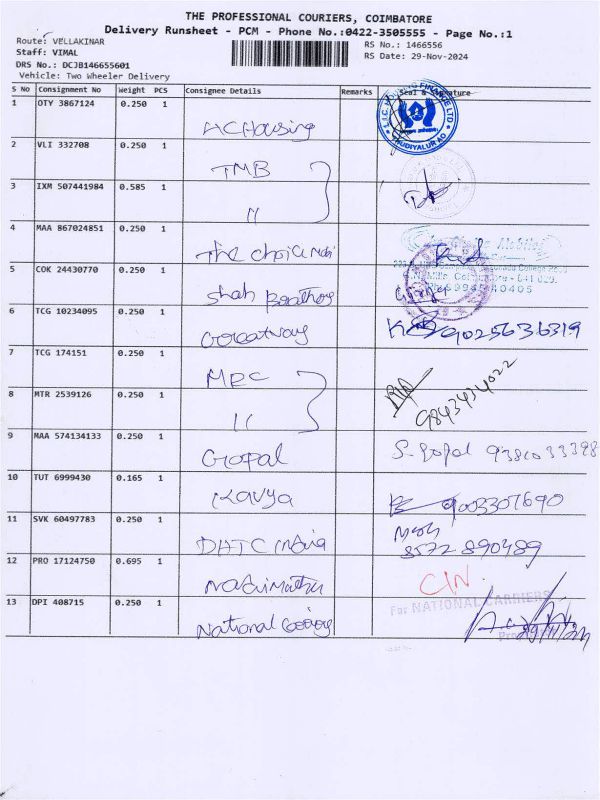 THE PROFESSIONAL COURIERS, COIMBATORE
Delivery Runsheet - PCM - Phone No.:0422-3505555 - Page No.:1
Route: VELLAKINAR
Staff: VIMAL
DRS No.: DCJB146655601
Vehicle: Two Wheeler Delivery
RS No.: 1466556
RS Date: 29-Nov-2024
S No Consignment No Weight PCS Consignee Details Remarks Seal & Signature
1 OTY 3867124 0.250 1
L.I.C. HOUSING FINANCE LTD
2 VLI 332708 0.250 1 TMB
3 IXM 507441984 0.585 1 "
4 MAA 867024851 0.250 1 The choice
5 COK 24430770 0.250 1 Shah
6 TCG 10234095 0.250 1 9025636319
7 TCG 174151 0.250 1 MRC
8 MTR 2539126 0.250 1 " 9843434022
9 MAA 574134133 0.250 1 Gopal S. Gopal
10 TUT 6999430 0.165 1 Kavya 9003307690
11 SVK 60497783 0.250 1 8572890489
12 PRO 17124750 0.695 1
13 DPI 408715 0.250 1 National
For NATIONAL CARRIERS